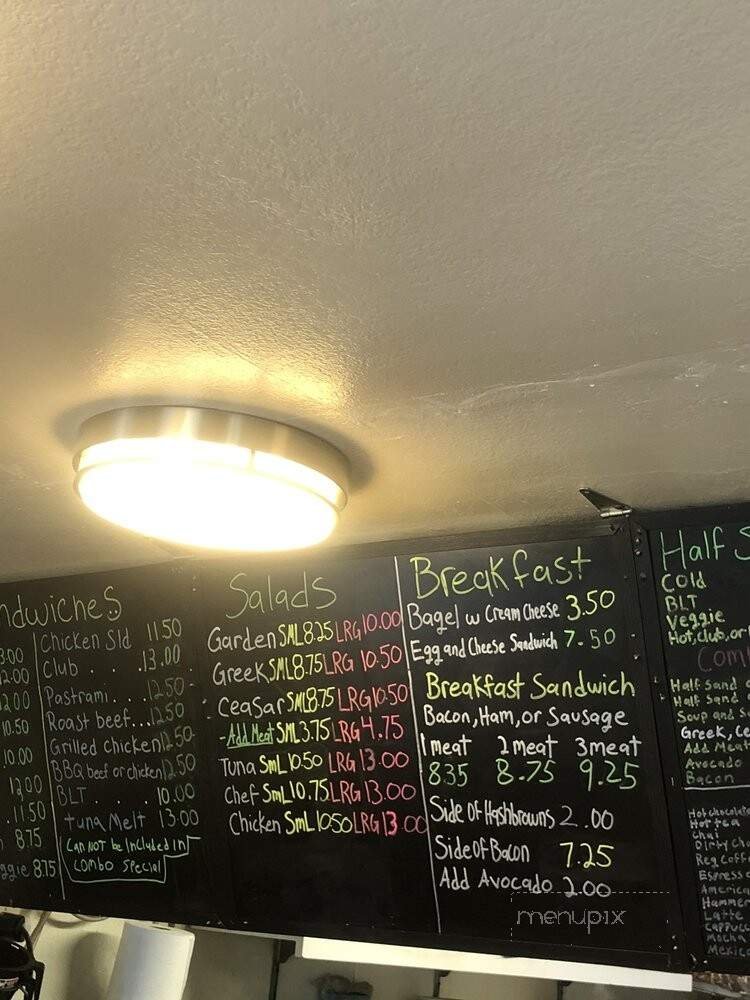 ndwiches
3.00
12.00
12.00
10.50
10.00
12.00
11.50
8.75
ggie 8.75
Chicken Sld 11.50
Club . . . . 13.00
Pastrami . . . 12.50
Roast beef... 12.50
Grilled chicken 12.50
BBQ beef or chicken 12.50
BLT . . . . 10.00
tuna Melt 13.00
Can not be Included in
combo special
Salads
Garden SML 8.25 LRG 10.00
Greek SML 8.75 LRG 10.50
Ceasar SML 8.75 LRG 10.50
-Add Meat SML 3.75 LRG 4.75
Tuna SmL 10.50 LRG 13.00
Chef SmL 10.75 LRG 13.00
Chicken SmL 10.50 LRG 13.00
Breakfast
Bagel w Cream Cheese 3.50
Egg and Cheese Sandwich 7.50
Breakfast Sandwich
Bacon, Ham, or Sausage
1 meat 2 meat 3 meat
835 8.75 9.25
Side Of Hashbrowns 2.00
Side Of Bacon 7.25
Add Avocado 2.00
Half S
Cold
BLT
Veggie
Hot, club, or
Com
Half sand
Half Sand
Soup and S
Greek, Ce
Add Meat
Avocado
Bacon
Hot chocolate
Hot tea
Chai
Dirty Cha
Reg Coff
Espress
America
Hammer
Latte
Cappucc
Mocha
Mexic
menupix